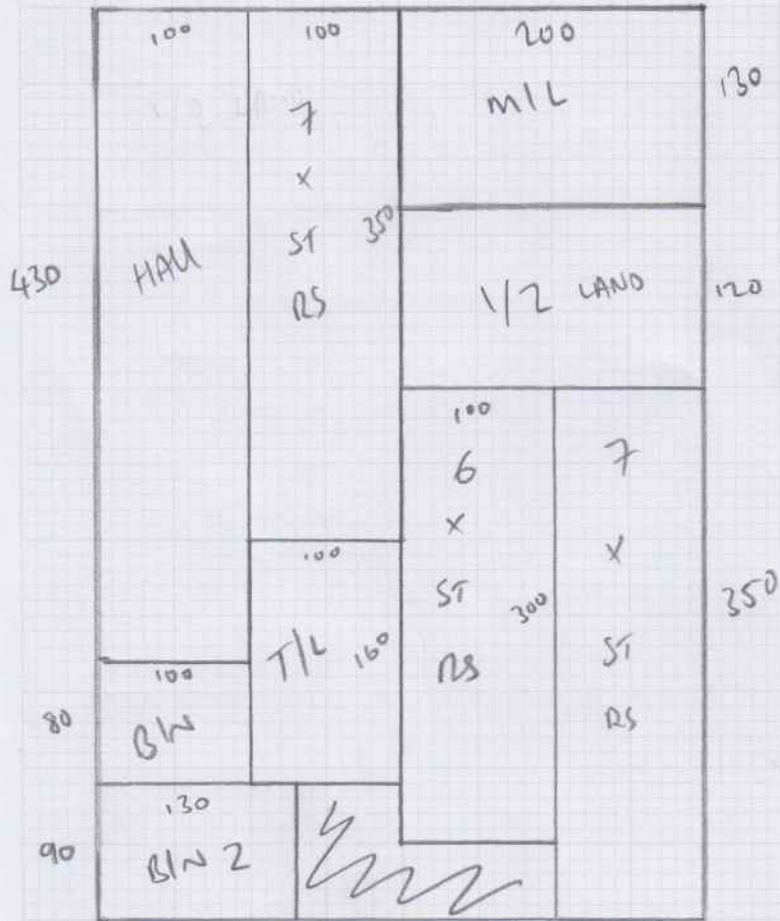 100
100
200
130
M/L
7
X
ST
RS
350
HALL
430
1/2 LAND
120
100
6
X
ST
RS
300
7
X
ST
RS
350
100
T/L
160
100
80
BIN
130
90
BIN 2